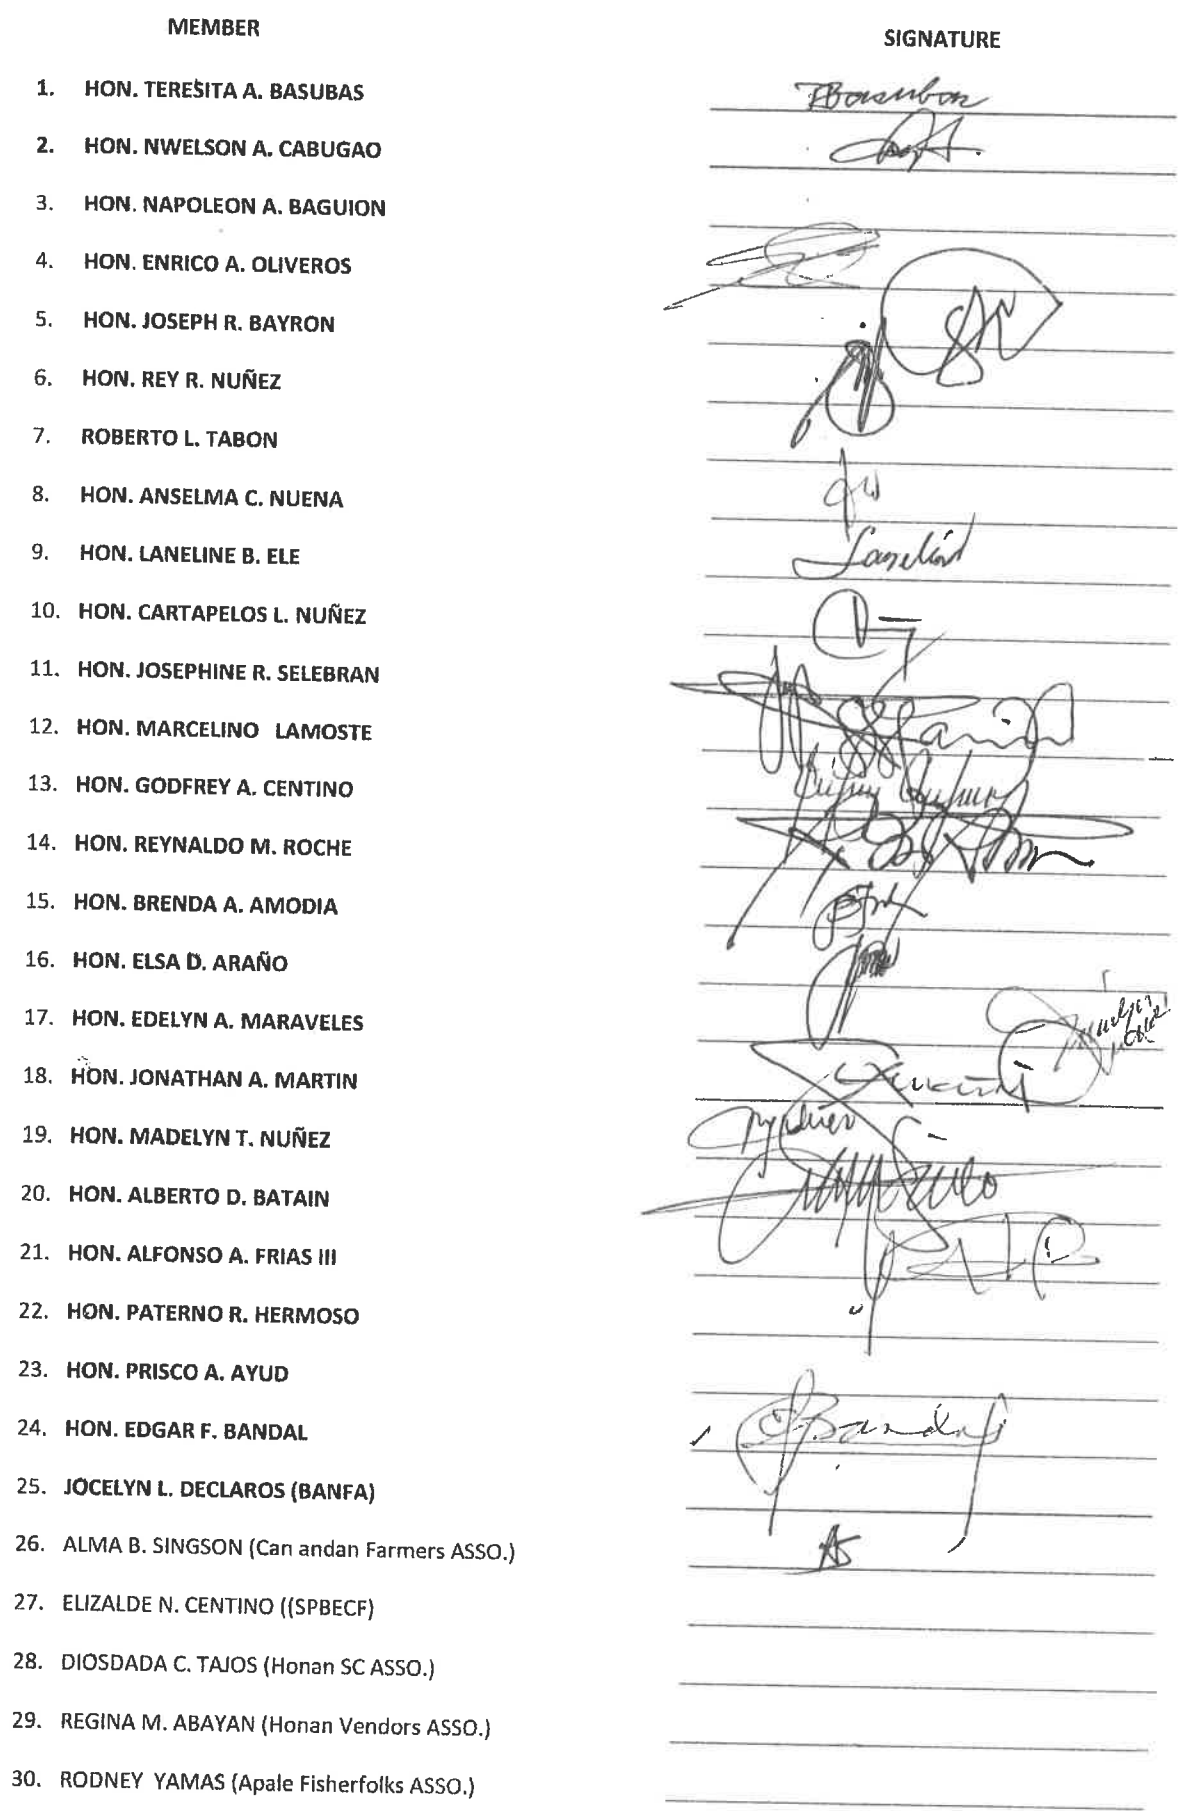 MEMBER SIGNATURE
1. HON. TERESITA A. BASUBAS TBasubas
2. HON. NWELSON A. CABUGAO
3. HON. NAPOLEON A. BAGUION
4. HON. ENRICO A. OLIVEROS
5. HON. JOSEPH R. BAYRON
6. HON. REY R. NUÑEZ
7. ROBERTO L. TABON
8. HON. ANSELMA C. NUENA
9. HON. LANELINE B. ELE
10. HON. CARTAPELOS L. NUÑEZ
11. HON. JOSEPHINE R. SELEBRAN
12. HON. MARCELINO LAMOSTE
13. HON. GODFREY A. CENTINO
14. HON. REYNALDO M. ROCHE
15. HON. BRENDA A. AMODIA
16. HON. ELSA D. ARAÑO
17. HON. EDELYN A. MARAVELES
18. HON. JONATHAN A. MARTIN
19. HON. MADELYN T. NUÑEZ
20. HON. ALBERTO D. BATAIN
21. HON. ALFONSO A. FRIAS III
22. HON. PATERNO R. HERMOSO
23. HON. PRISCO A. AYUD
24. HON. EDGAR F. BANDAL Bandal
25. JOCELYN L. DECLAROS (BANFA)
26. ALMA B. SINGSON (Can andan Farmers ASSO.)
27. ELIZALDE N. CENTINO ((SPBECF)
28. DIOSDADA C. TAJOS (Honan SC ASSO.)
29. REGINA M. ABAYAN (Honan Vendors ASSO.)
30. RODNEY YAMAS (Apale Fisherfolks ASSO.)